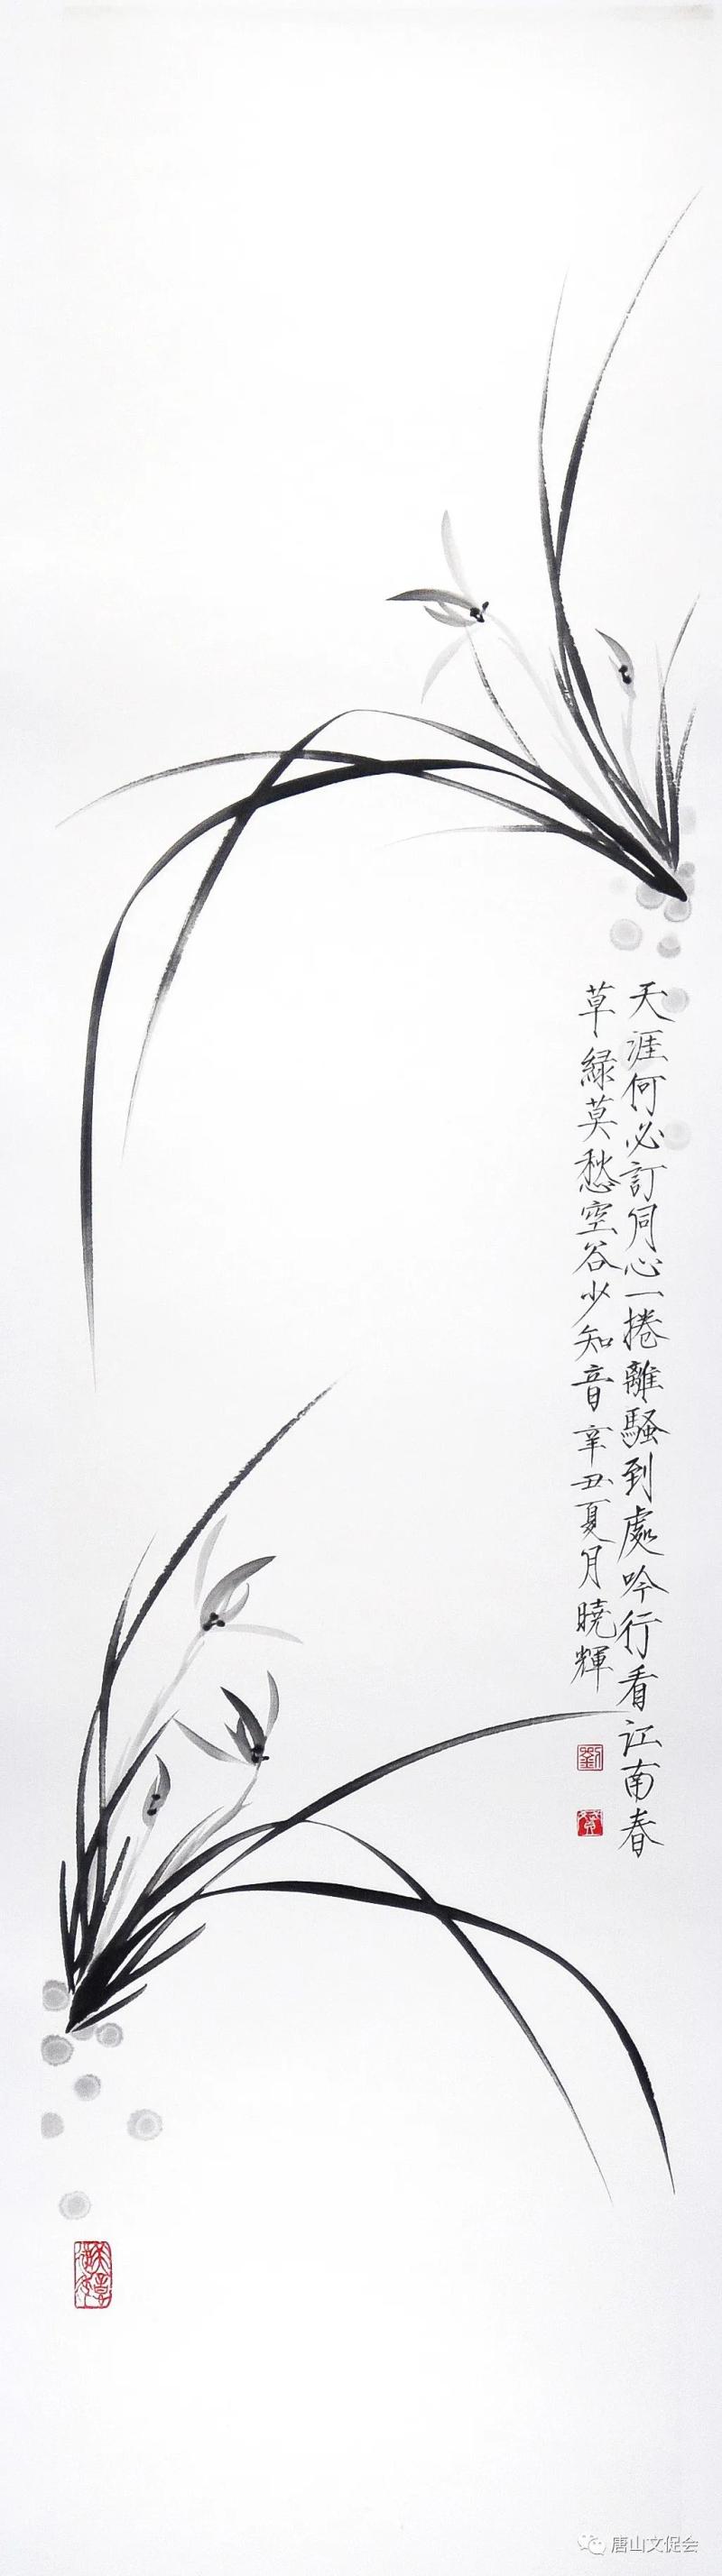 天涯何必訂同心一捲離騷到處吟行看江南春
草緑莫愁空谷少知音辛丑夏月曉輝
劉
唐山文促会